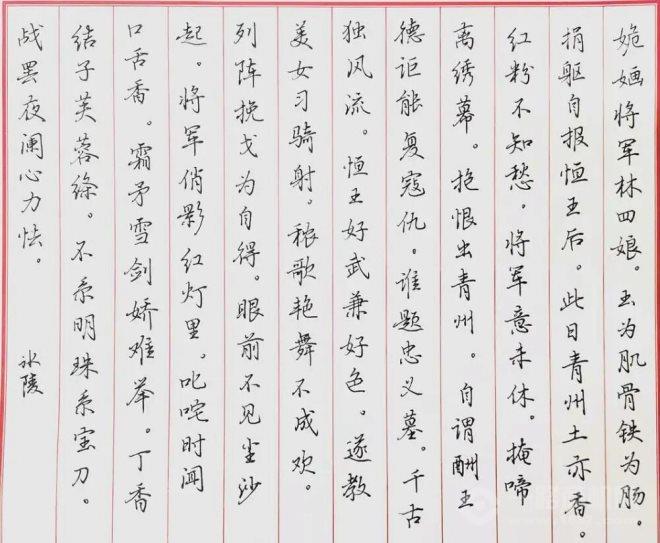 姽婳将军林四娘。玉为肌骨铁为肠。
捐躯自报恒王后。此日青州土亦香。
红粉不知愁。将军意未休。掩啼
离绣幕。抱恨出青州。自谓酬王
德讵能复寇仇。谁题忠义墓。千古
独风流。恒王好武兼好色。遂教
美女习骑射。秾歌艳舞不成欢。
列阵挽戈为自得。眼前不见尘沙
起。将军俏影红灯里。叱咤时闻
口舌香。霜矛雪剑娇难举。丁香
结子芙蓉绦。不系明珠系宝刀。
战罢夜阑心力怯。
冰陵